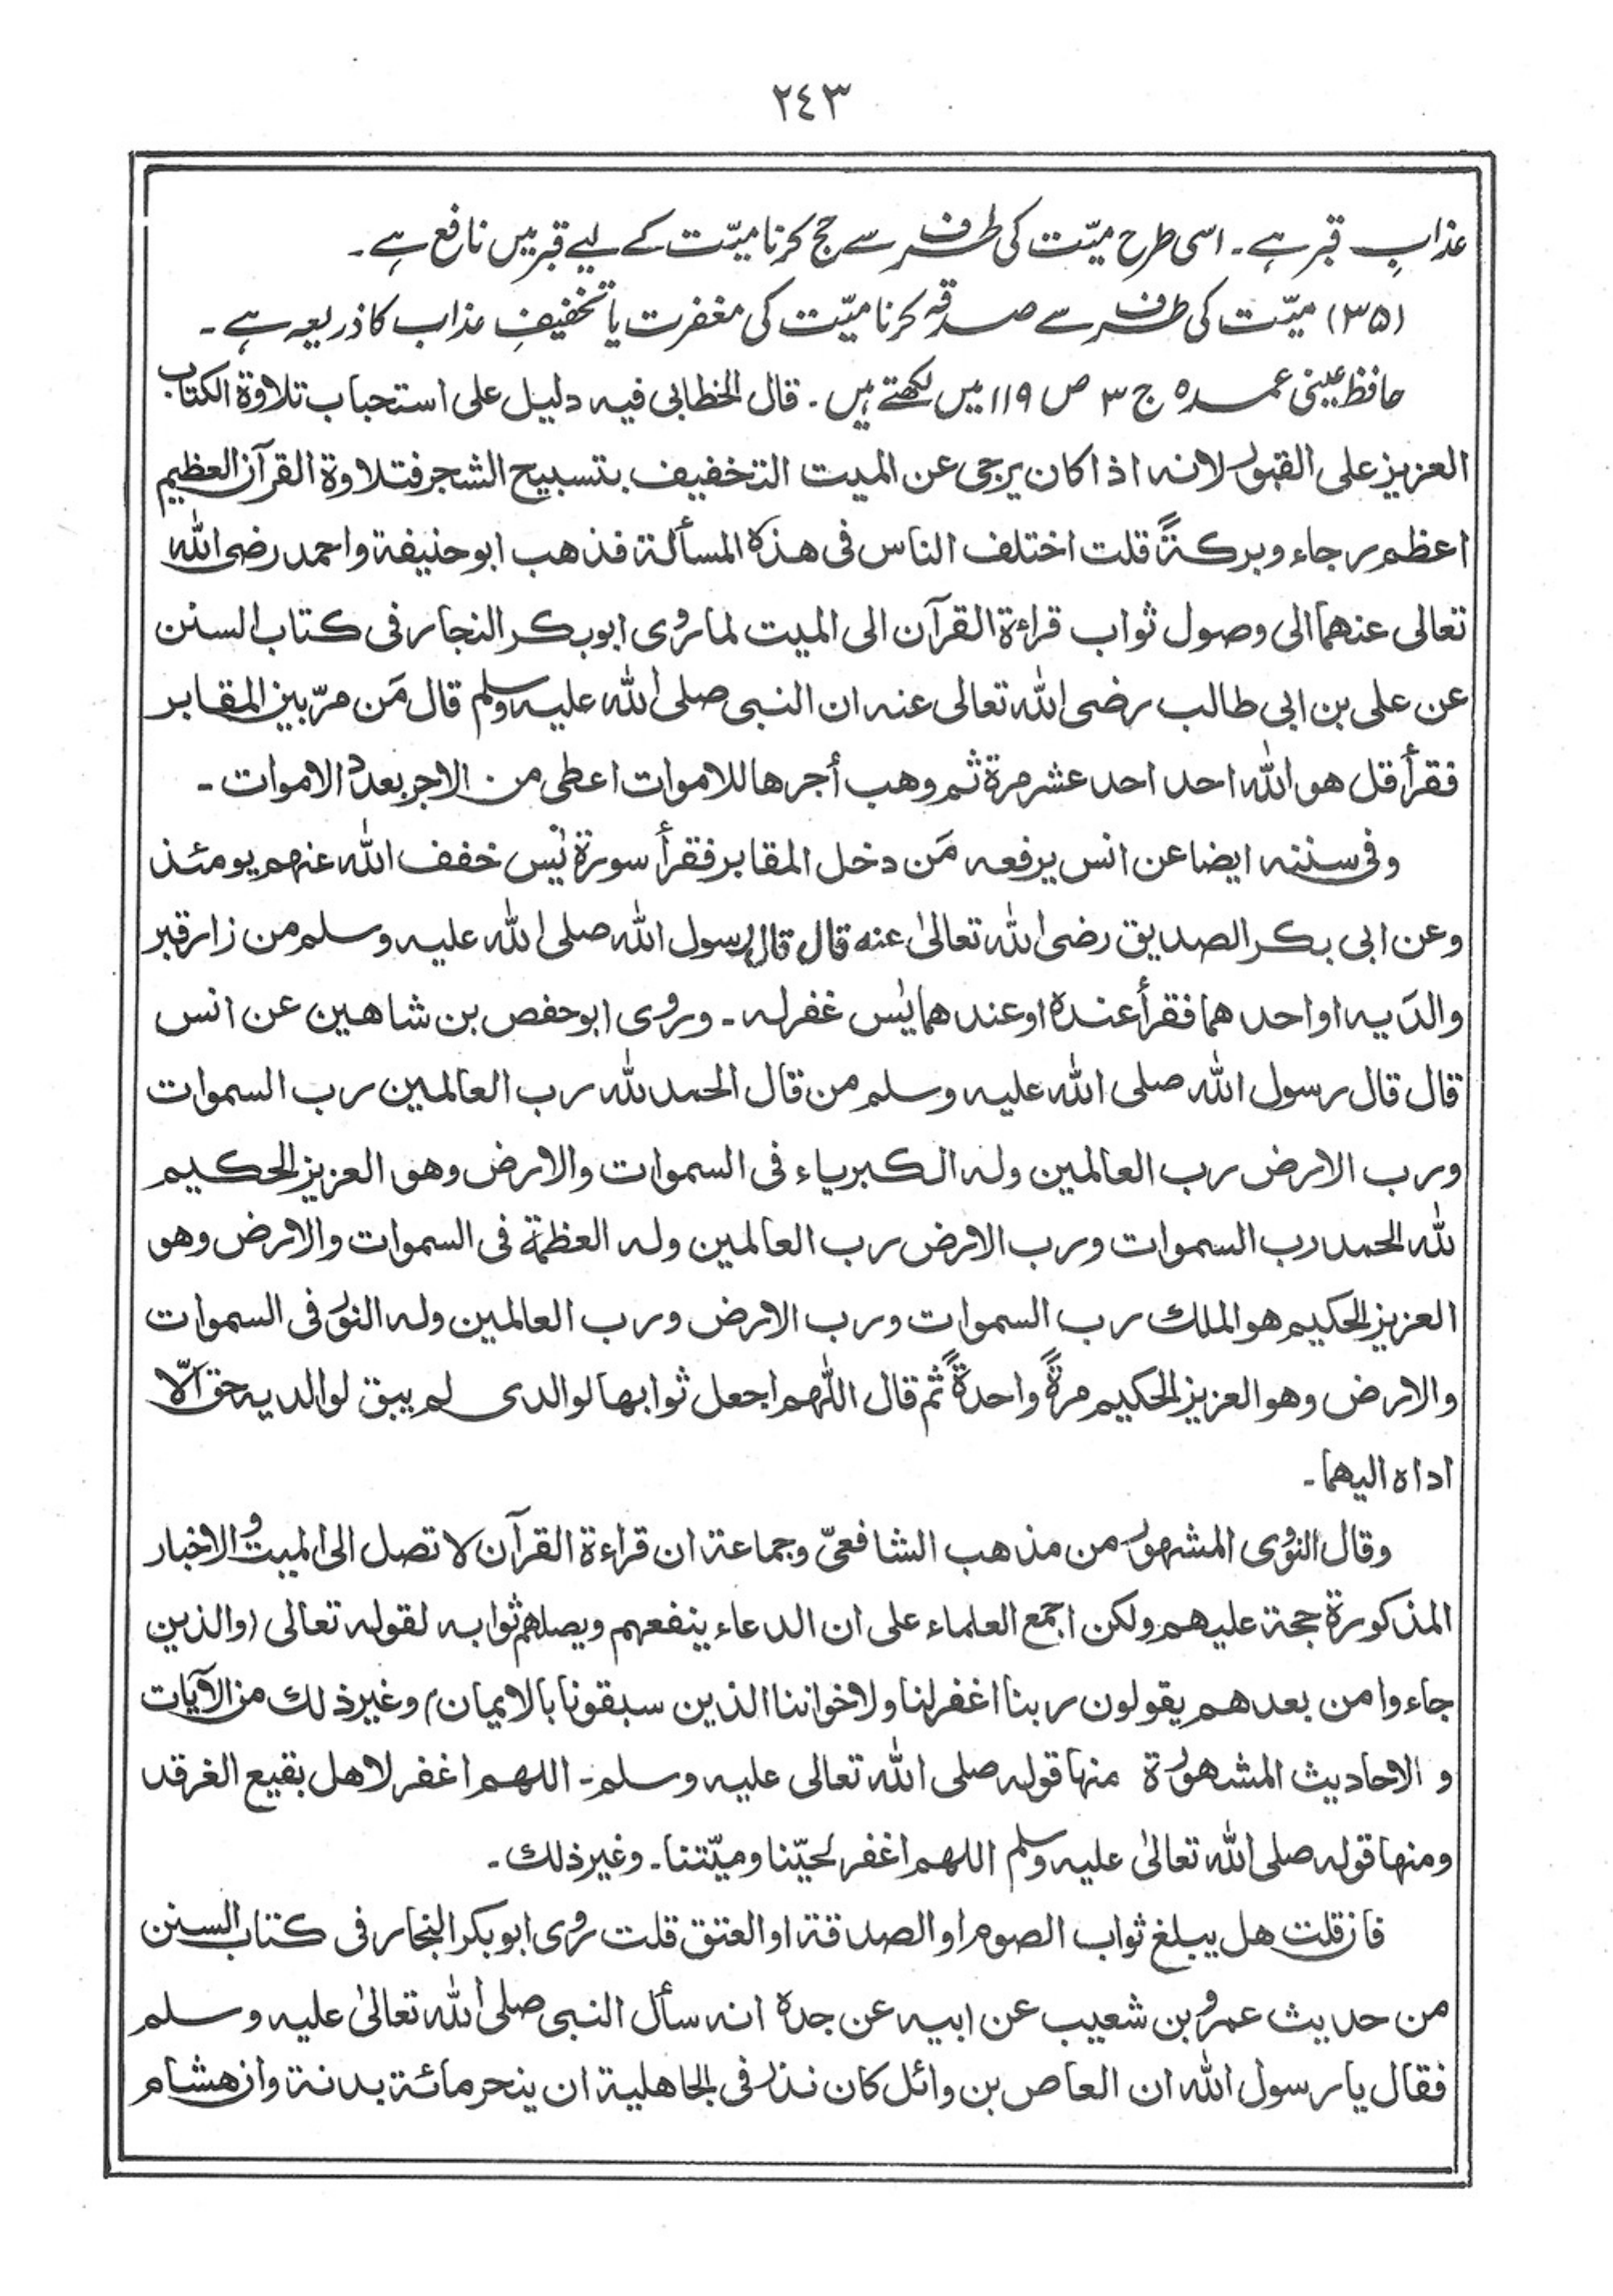 ٢٤٣
عذابِ قبر ہے۔ اسی طرح میّت کی طرف سے حج کرنا میّت کے لیے قبر میں نافع ہے۔
(۳۵) میّت کی طرف سے صدقہ کرنا میّت کی مغفرت یا تخفیفِ عذاب کا ذریعہ ہے۔
حافظ عینی عمدہ ج ۳ ص ۱۱۹ میں لکھتے ہیں۔ قال الخطابی فیہ دلیل علی استحباب تلاوۃ الکتاب
العزیز علی القبور لانہ اذا کان یرجی عن المیت التخفیف بتسبیح الشجر فتلاوۃ القرآن العظیم
اعظم رجاء وبرکۃً قلت اختلف الناس فی ھذہ المسألۃ فذھب ابوحنیفۃ واحمد رضی اللہ
تعالی عنھما الی وصول ثواب قراءۃ القرآن الی المیت لما روٰی ابوبکر النجار فی کتاب السنن
عن علی بن ابی طالب رضی اللہ تعالی عنہ ان النبی صلی اللہ علیہ وسلم قال مَن مرّ بین المقابر
فقرأ قل ھو اللہ احد احد عشر مرۃ ثم وھب أجرھا للاموات اعطی من الاجر بعدد الاموات۔
وفی سننہ ایضا عن انس یرفعہ مَن دخل المقابر فقرأ سورۃ یٰس خفف اللہ عنھم یومئذ
وعن ابی بکر الصدیق رضی اللہ تعالیٰ عنہ قال قال رسول اللہ صلی اللہ علیہ وسلم من زار قبر
والدَیہ او احدھما فقرأ عندہ او عندھما یٰس غفرلہ۔ وروٰی ابوحفص بن شاھین عن انس
قال قال رسول اللہ صلی اللہ علیہ وسلم من قال الحمد للہ رب العالمین رب السموات
ورب الارض رب العالمین ولہ الکبریاء فی السموات والارض وھو العزیز الحکیم
للہ الحمد رب السموات ورب الارض رب العالمین ولہ العظمۃ فی السموات والارض وھو
العزیز الحکیم ھو الملک رب السموات ورب الارض ورب العالمین ولہ النور فی السموات
والارض وھو العزیز الحکیم مرۃً واحدۃً ثم قال اللّٰھم اجعل ثوابھا لوالدی لم یبق لوالدیہ حق الّا
اداہ الیھما۔
وقال النووی المشھور من مذھب الشافعیّ وجماعۃ ان قراءۃ القرآن لا تصل الی المیت والاخبار
المذکورۃ حجۃ علیھم ولکن اجمع العلماء علی ان الدعاء ینفعھم ویصلھم ثوابہ لقولہ تعالی (والذین
جاءوا من بعدھم یقولون ربنا اغفرلنا ولاخواننا الذین سبقونا بالایمان) وغیر ذلک من الآیات
و الاحادیث المشھورۃ منھا قولہ صلی اللہ تعالی علیہ وسلم۔ اللھم اغفر لاھل بقیع الغرقد
ومنھا قولہ صلی اللہ تعالیٰ علیہ وسلم اللھم اغفر لحیّنا ومیّتنا۔ وغیر ذلک۔
فان قلت ھل یبلغ ثواب الصوم او الصدقۃ او العتق قلت روٰی ابوبکر النجار فی کتاب السنن
من حدیث عمرو بن شعیب عن ابیہ عن جدہ انہ سأل النبی صلی اللہ تعالیٰ علیہ وسلم
فقال یا رسول اللہ ان العاص بن وائل کان نذر فی الجاھلیۃ ان ینحر مائۃ بدنۃ وان ھشام